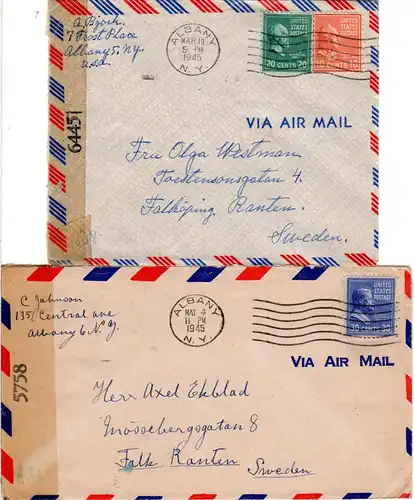 A. Bjork
7 Frost Place
Albany 5, N.Y.
U.S.A.
ALBANY
MAR 19
5 PM
1945
N.Y.
UNITED STATES POSTAGE
20 CENTS 20
UNITED STATES POSTAGE
10 CENTS 10
64451
VIA AIR MAIL
Fru Olga Westman
Torstensonsgatan 4.
Falköping Ranten.
Sweden.
C Johnson
135 Central ave
Albany 6 N.Y.
ALBANY
MAY 4
11 PM
1945
N.Y.
UNITED STATES POSTAGE
30 CENTS 30
5758
VIA AIR MAIL
Herr Axel Ekblad
Mössebergsgatan 8
Falk Ranten
Sweden